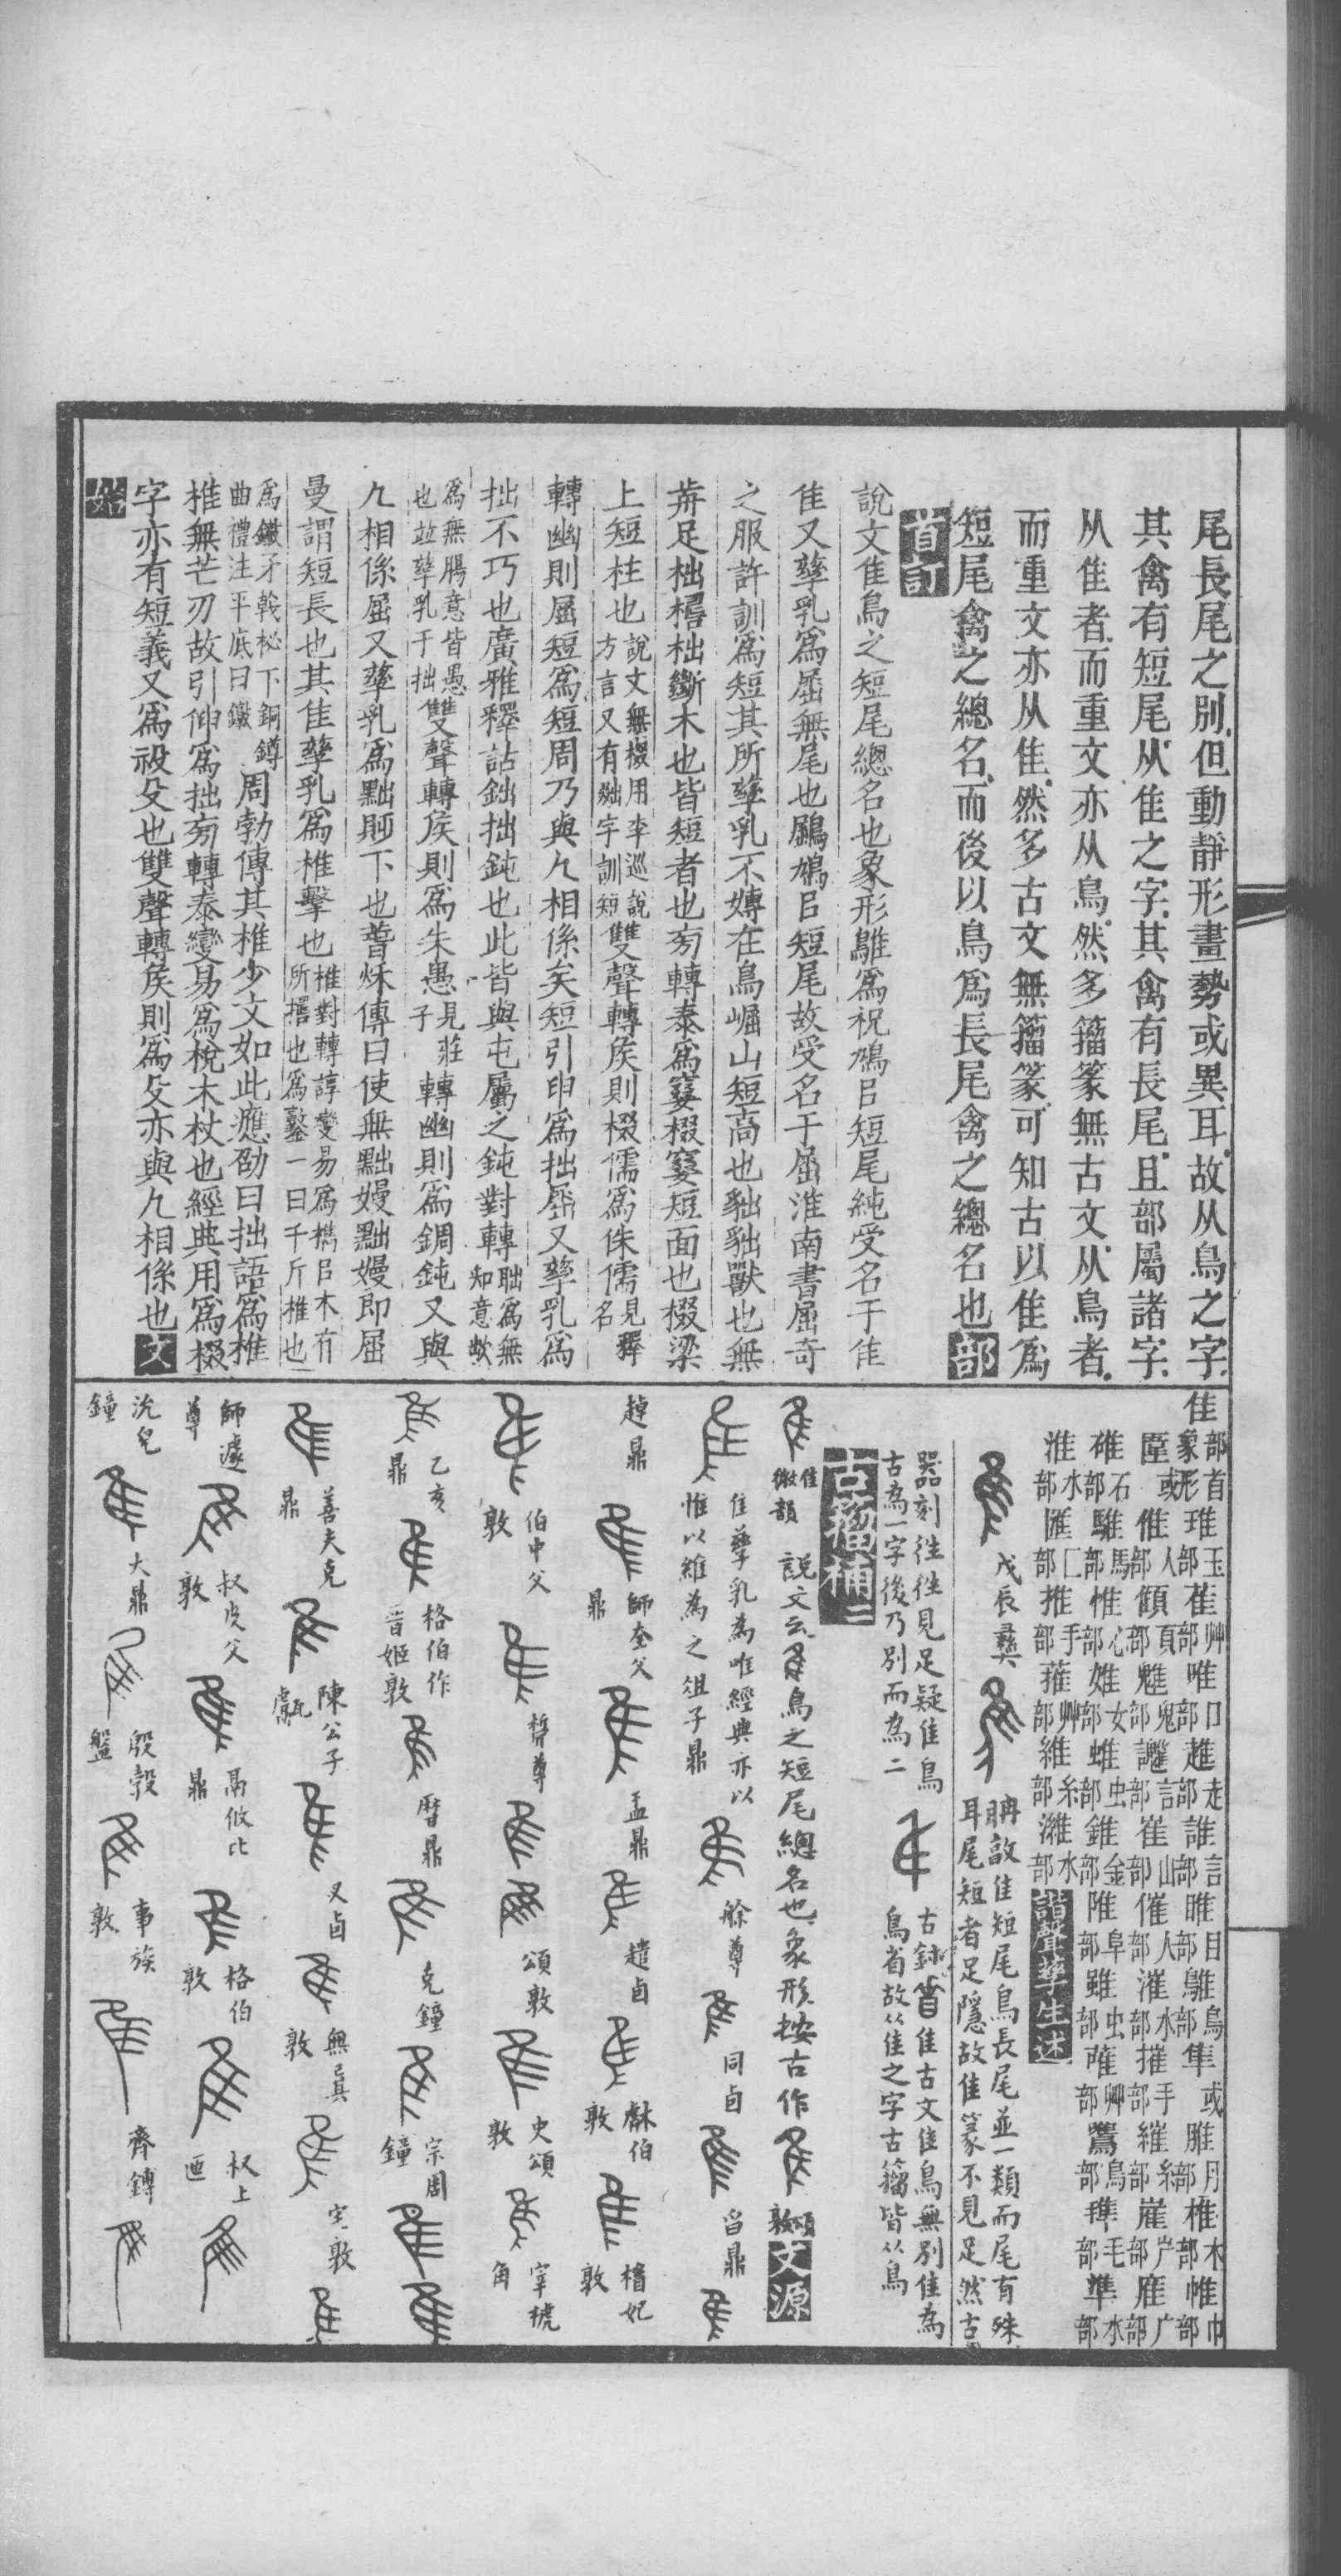 尾長尾之別但動靜形畫勢或異耳故从鳥之字
其禽有短尾从隹之字其禽有長尾且部屬諸字
从隹者而重文亦从鳥然多籀篆無古文从鳥者
而重文亦从隹然多古文無籀篆可知古以隹爲
短尾禽之總名而後以鳥爲長尾禽之總名也部
首訂
說文隹鳥之短尾總名也象形鵻爲祝鳩㠯短尾純受名于隹
隹又孳乳爲屈無尾也鶌鳩㠯短尾故受名于屈淮南書屈奇
之服許訓爲短其所孳乳不嫥在鳥崛山短高也貀貀獸也無
歬足柮榾柮斷木也皆短者也旁轉泰爲窡棳窡短面也棳梁
上短柱也說文無棳用李巡說
方言又有䠳字訓短
雙聲轉矦則棳儒爲侏儒見釋
名
轉幽則屈短爲短周乃與几相係矣短引申爲拙屈又孳乳爲
拙不巧也廣雅釋詁鈯拙鈍也此皆與屯屬之鈍對轉聉爲無
知意
爲無腸意皆愚
也竝孳乳于拙
雙聲轉矦則爲朱愚見莊
子
轉幽則爲錭鈍又與
几相係屈又孳乳爲黜貶下也晉炢傳曰使無黜嫚黜嫚即屈
曼謂短長也其隹孳乳爲椎擊也椎對轉諄變易爲㰏㠯木有
所擣也爲鏊一曰千斤椎也
爲鐵矛戟柲下銅鐏
曲禮注平底曰鐓
周勃傳其椎少文如此應劭曰拙語爲椎
椎無芒刃故引伸爲拙旁轉泰變易爲梲木杖也經典用爲棳
字亦有短義又爲祋殳也雙聲轉矦則爲殳亦與几相係也文
始
隹部首
象形
琟玉部
萑艸部
唯口部
趡走部
誰言部
睢目部
鵻鳥部
隼或
脽月部
椎木部
帷巾部
雇或
倠人部
頧頁部
魋鬼部
讎言部
崔山部
催人部
漼水部
摧手部
維糸部
崖屵部
雁广部
碓石部
騅馬部
惟心部
婎女部
蜼虫部
錐金部
陮阜部
雖虫部
蓷艸部
鷕鳥部
準水部
淮水部
匯匚部
推手部
蓷艸部
維糸部
濰水部
諧聲孳生述
戊辰彝
聃㪇隹短尾鳥長尾並一類而尾有殊
耳尾短者足隱故隹篆不見足然古
器刻往往見足疑隹鳥
古為一字後乃別而為二
古鉨隹古文隹鳥無別隹為
鳥省故从隹之字古籀皆从鳥
古籀補二
隹
微韻
說文云鳥之短尾總名也象形按古作
頌敦
文源
隹孳乳為唯經典亦以
惟以維為之俎子鼎
艅尊
同卣
曶鼎
趠鼎
師奎父
鼎
盂鼎
趞卣
㝬伯
敦
樝妃
敦
伯中父
敦
㫚尊
頌敦
史頌
敦
宰椃
角
乙亥
鼎
格伯作
晉姬敦
曆鼎
克鐘
宗周
鐘
善夫克
鼎
陳公子
甗
叉卣
無㠱
敦
㝨敦
師遽
尊
叔皮父
敦
鬲攸比
鼎
格伯
敦
叔上
匜
沇兒
鐘
大鼎
殷㝅
盤
事族
敦
齊鎛